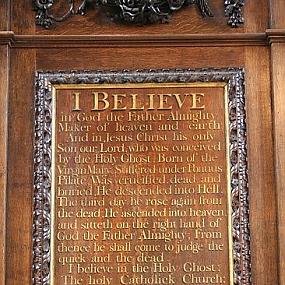 I BELIEVE
in God the Father Almighty
Maker of heaven and earth
And in Jesus Christ his only
Son our Lord, who was conceived
by the Holy Ghost, Born of the
Virgin Mary, Suffered under Pontius
Pilate, Was crucified, dead, and
buried, He descended into Hell,
The third day he rose again from
the dead, He ascended into heaven,
and sitteth on the right hand of
God the Father Almighty; From
thence he shall come to judge the
quick and the dead.
I believe in the Holy Ghost;
The holy Catholick Church;